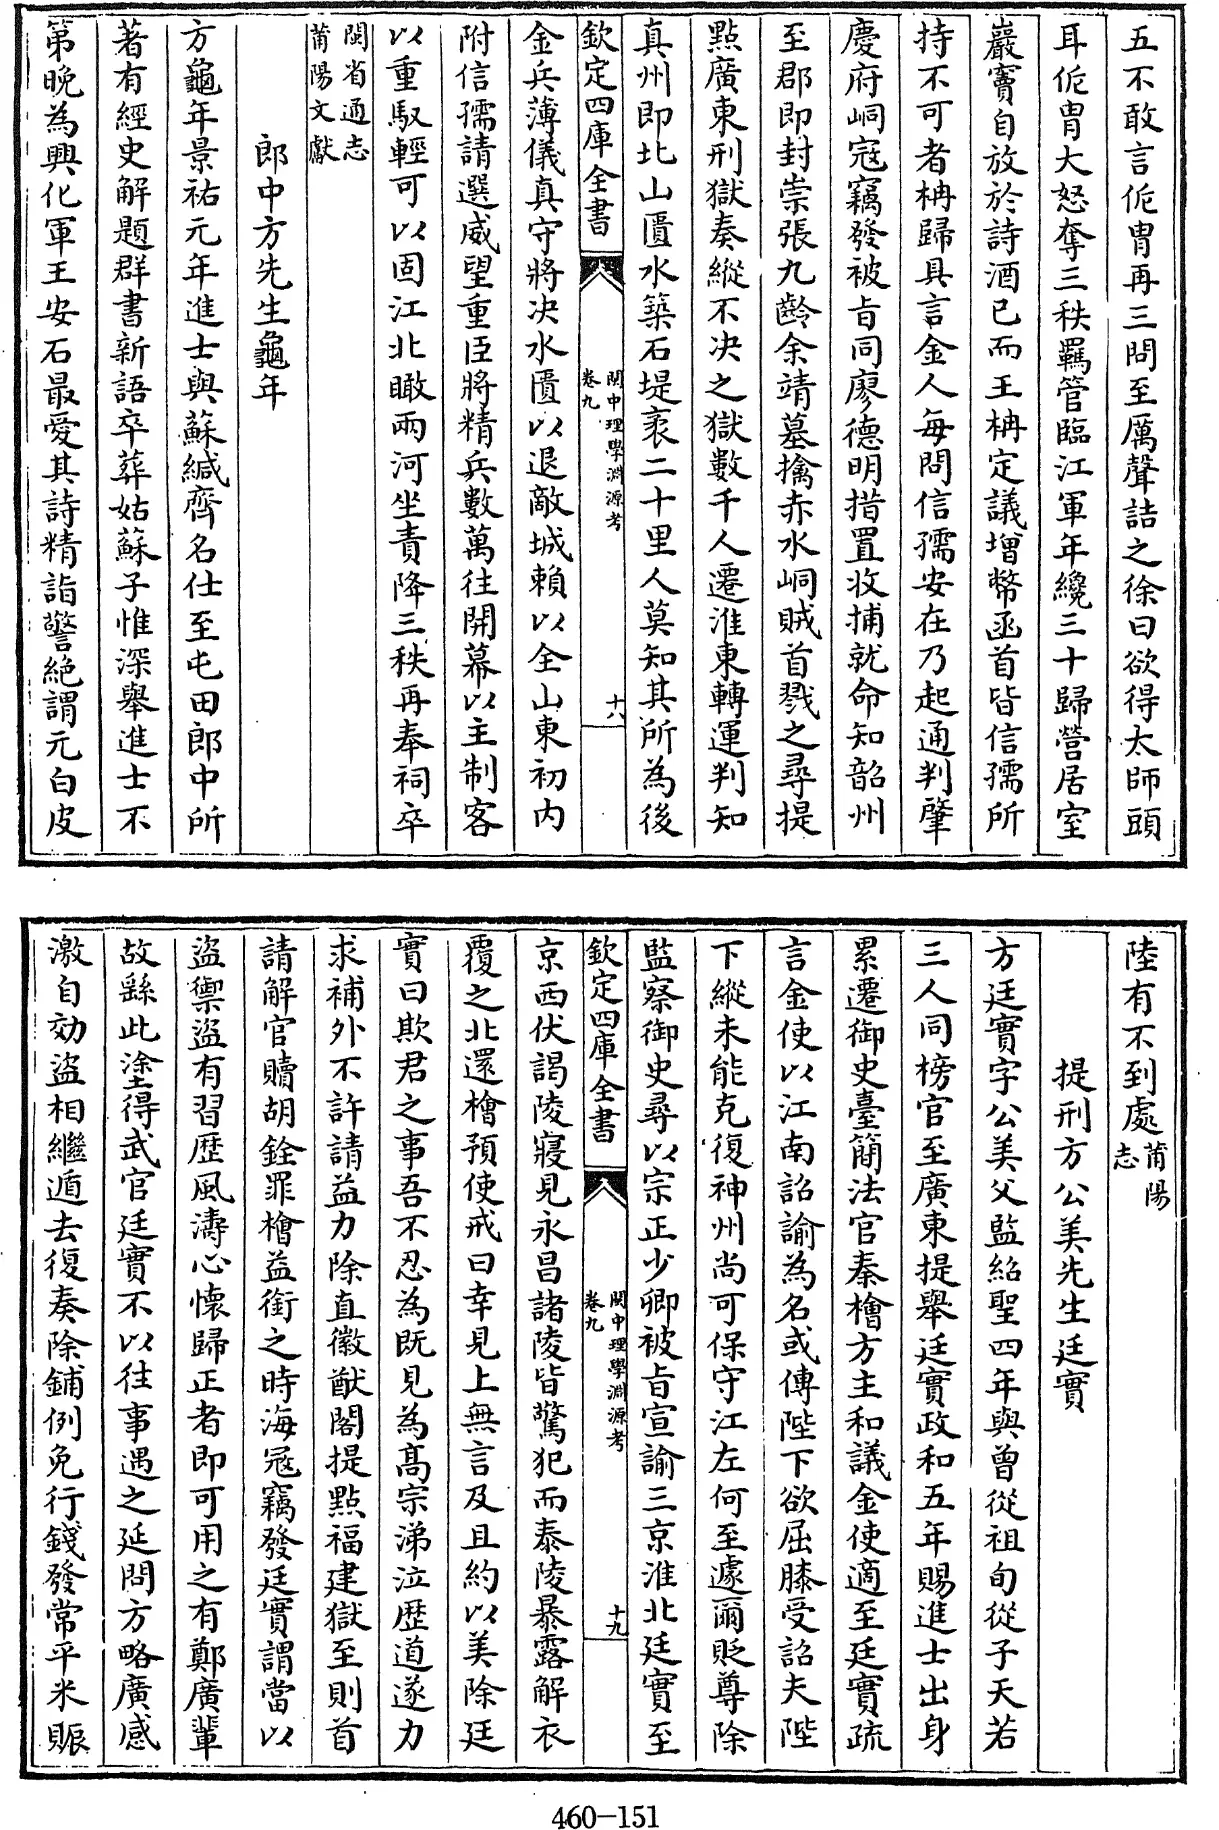 五不敢言侂胄再三問至厲聲詰之徐曰欲得太師頭
耳侂胄大怒奪三秩羈管臨江軍年纔三十歸營居室
巖竇自放於詩酒已而王柟定議增幣函首皆信孺所
持不可者柟歸具言金人每問信孺安在乃起通判肇
慶府峒寇竊發被㫖同廖德明措置收捕就命知韶州
至郡即封崇張九齡余靖墓擒赤水峒賊首戮之尋提
點廣東刑獄奏縱不決之獄數千人遷淮東轉運判知
真州即北山匱水築石堤袤二十里人莫知其所為後
欽定四庫全書
閩中理學淵源考
卷九
十八
金兵薄儀真守將決水匱以退敵城賴以全山東初内
附信孺請選威望重臣將精兵數萬往開幕以主制客
以重馭輕可以固江北瞰兩河坐責降三秩再奉祠卒
閩省通志
莆陽文獻
郎中方先生龜年
方龜年景祐元年進士與蘇緘齊名仕至屯田郎中所
著有經史解題群書新語卒葬姑蘇子惟深舉進士不
第晚為興化軍王安石最愛其詩精詣警絶謂元白皮
陸有不到處莆陽
志
提刑方公美先生廷實
方廷實字公美父監紹聖四年與曾從祖旬從子天若
三人同榜官至廣東提舉廷實政和五年賜進士出身
累遷御史臺簡法官秦檜方主和議金使適至廷實疏
言金使以江南詔諭為名或傳陛下欲屈膝受詔夫陛
下縱未能克復神州尚可保守江左何至遽爾貶尊除
監察御史尋以宗正少卿被㫖宣諭三京淮北廷實至
欽定四庫全書
閩中理學淵源考
卷九
十九
京西伏謁陵寢見永昌諸陵皆驚犯而泰陵暴露解衣
覆之北還檜預使戒曰幸見上無言及且約以美除廷
實曰欺君之事吾不忍為既見為髙宗涕泣歴道遂力
求補外不許請益力除直徽猷閣提點福建獄至則首
請解官贖胡銓罪檜益銜之時海冦竊發廷實謂當以
盜禦盜有習歴風濤心懷歸正者即可用之有鄭廣輩
故繇此塗得武官廷實不以往事遇之延問方略廣感
激自効盜相繼遁去復奏除鋪例免行錢發常平米賑
460-151